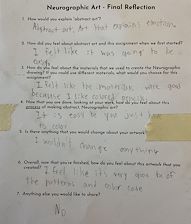 Neurographic Art - Final Reflection
1. How would you explain "abstract art"?
Abstract art Art that explains emotion
2. How did you feel about abstract art and this assignment when we first started?
I felt like it was going to be
3. How do you feel about the materials that we used to create the Neurographic
drawing? If you could use different materials, what would you choose for this
assignment?
I felt like the materials were good
because I like colored pencils
4. Now that you are done, looking at your work, how do you feel about this
process of making abstract, Neurographic art?
It is easy
5. Is there anything that you would change about your artwork?
I wouldn't change anything
6. Overall, now that you're finished, how do you feel about this artwork that you
created?
I feel like it's very good b/c of
the patterns and color
7. Anything else you would like to share?
No